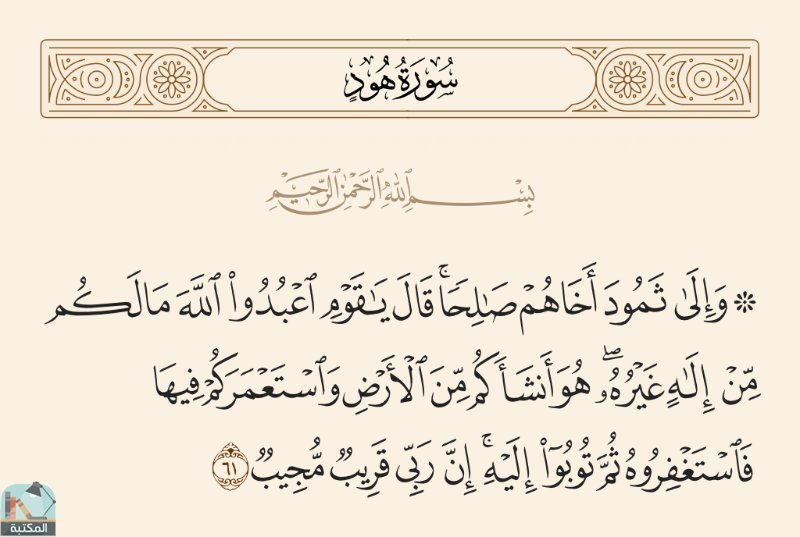 سُورَةُ هُودٍ
بِسْمِ ٱللَّهِ ٱلرَّحْمَٰنِ ٱلرَّحِيمِ
۞ وَإِلَىٰ ثَمُودَ أَخَاهُمۡ صَٰلِحٗاۚ قَالَ يَٰقَوۡمِ ٱعۡبُدُواْ ٱللَّهَ مَا لَكُم
مِّنۡ إِلَٰهٍ غَيۡرُهُۥۖ هُوَ أَنشَأَكُم مِّنَ ٱلۡأَرۡضِ وَٱسۡتَعۡمَرَكُمۡ فِيهَا
فَٱسۡتَغۡفِرُوهُ ثُمَّ تُوبُوٓاْ إِلَيۡهِۚ إِنَّ رَبِّي قَرِيبٞ مُّجِيبٞ ٦١
المكتبة